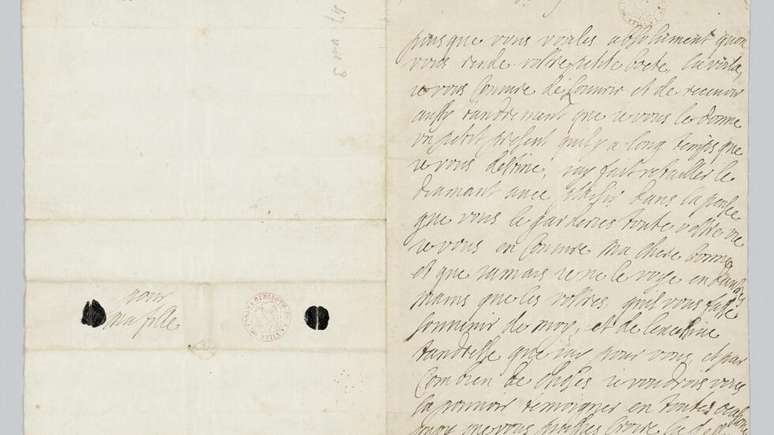 pour
ma fille
puis que vous voules absolument quon
vous rende vostre petite boete la voila
ie vous coniure de conserver et de recevoir
aussy tandrement que ie vous le donne
un petit present quil y a long temps que
ie vous destine, iay fait retailler le
diamant avec plaisir dans la pensée
que vous le garderies toute vostre vie
ie vous en coniure ma chere bonne
et que iamais ie ne le voye en dautres
mains que les vostres quil vous fasse
souvenir de moy, et de lexcessive
tandresse que iay pour vous, et par
combien de choses ie voudrois vous
la pouvoir temoigner en toutes
quoy que vous puissies croire la